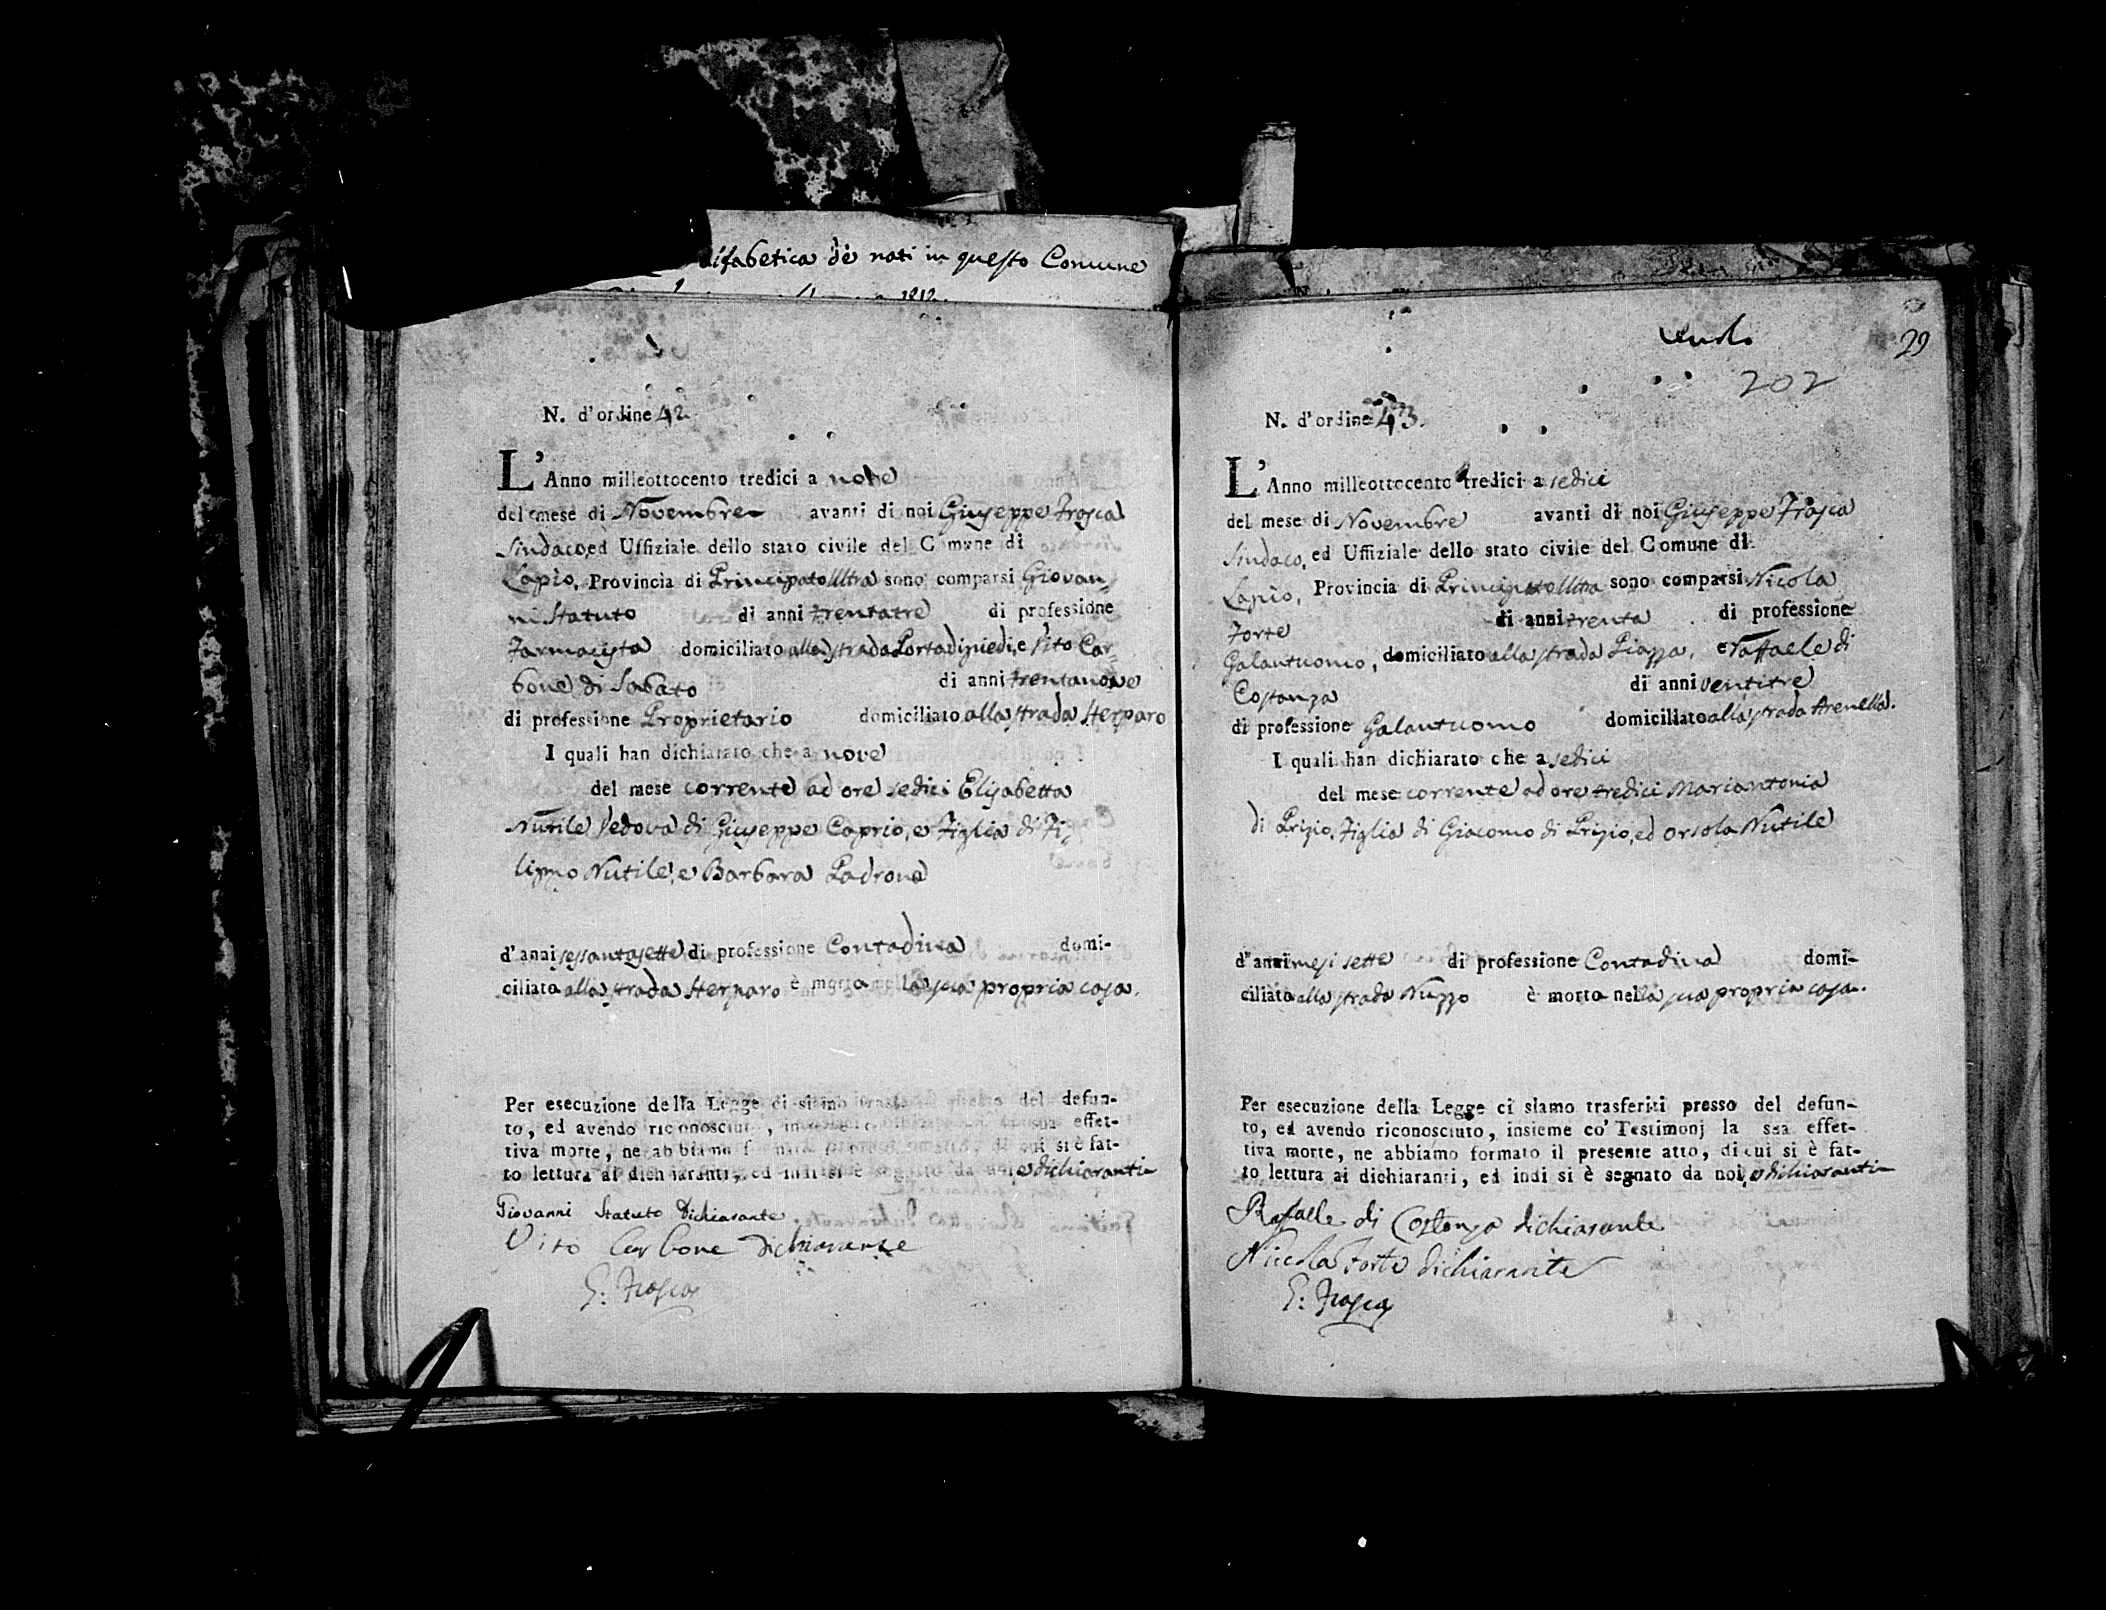 alfabetica de nati in questo Comune
1812.
N. d'ordine 42.
L'Anno milleottocento tredici a nove
del mese di Novembre avanti di noi Giuseppe Frasca
Sindaco, ed Uffiziale dello stato civile del Comune di
Lapio, Provincia di Principato Ultra sono comparsi Giovan=
ni Statuto di anni trentatre di professione
Farmacista domiciliato alla strada Portadipiedi, e Vito Car=
bone di Sabato di anni trentanove
di professione Proprietario domiciliato alla strada Sterparo
I quali han dichiarato che a nove
del mese corrente ad ore sedici Elisabetta
Nutile Vedova di Giuseppe Caprio, e Figlia di Fi=
lippo Nutile, e Barbara Padrona
d'anni sessantasette di professione Contadina domi-
ciliata alla strada Sterparo è morta nella sua propria casa.
Per esecuzione della Legge ci siamo trasferiti presso del defun-
to, ed avendo riconosciuto, insieme co' Testimonj la sua effet-
tiva morte, ne abbiamo formato il presente atto, di cui si è fat-
to lettura ai dichiaranti, ed indi si è segnato da noi, e dichiaranti
Giovanni Statuto Dichiarante
Vito Carbone Dichiarante
G: Frasca
29
202
N. d'ordine 43.
L'Anno milleottocento tredici a sedici
del mese di Novembre avanti di noi Giuseppe Frasca
Sindaco, ed Uffiziale dello stato civile del Comune di
Lapio, Provincia di Principato Ultra sono comparsi Nicola
Forte di anni trenta di professione
Galantuomo, domiciliato alla strada Piazza, e Raffaele di
Costanza di anni ventitre
di professione Galantuomo domiciliato alla strada Arenella.
I quali han dichiarato che a sedici
del mese corrente ad ore tredici Mariantonia
di Prizio, Figlia di Giacomo di Prizio, ed Orsola Nutile
d'anni mesi sette di professione Contadina domi-
ciliata alla strada Nuzzo è morta nella sua propria casa.
Per esecuzione della Legge ci siamo trasferiti presso del defun-
to, ed avendo riconosciuto, insieme co' Testimonj la sua effet-
tiva morte, ne abbiamo formato il presente atto, di cui si è fat-
to lettura ai dichiaranti, ed indi si è segnato da noi, e dichiaranti
Rafaelle di Costanzo dichiarante
Niccola Forte dichiarante
G: Frasca